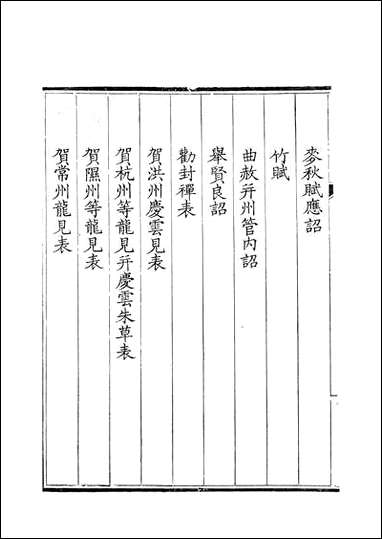 麥秋賦應詔
竹賦
曲赦并州管內詔
舉賢良詔
勸封禪表
賀洪州慶雲見表
賀杭州等龍見并慶雲朱草表
賀隰州等龍見表
賀常州龍見表